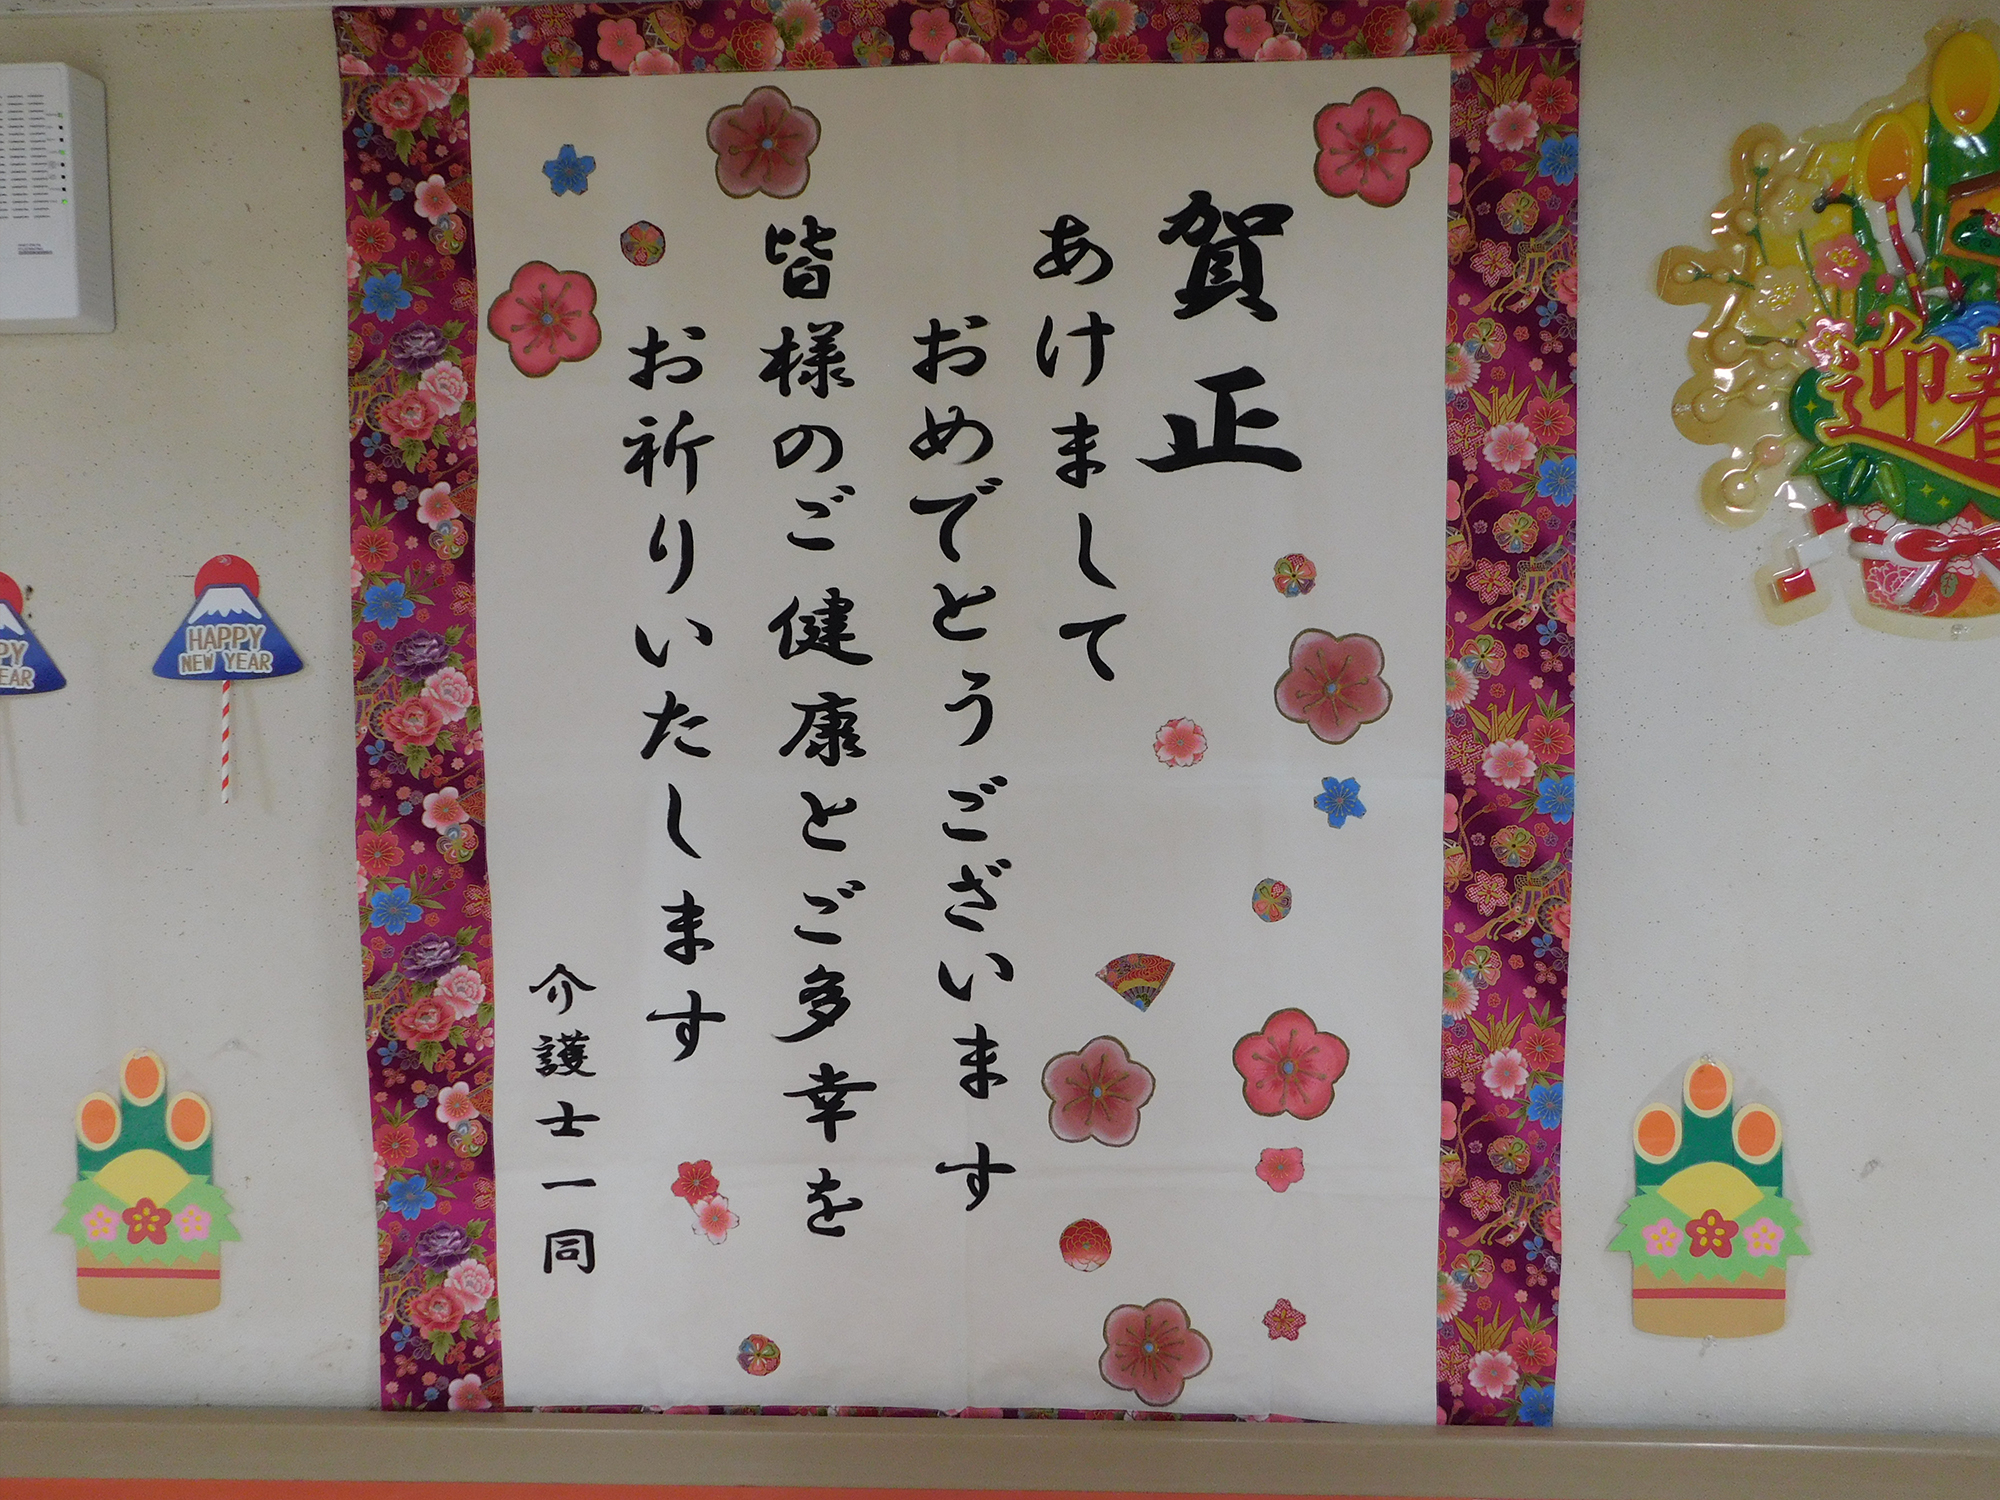 賀正
あけまして
おめでとうございます
皆様のご健康とご多幸を
お祈りいたします
介護士一同
迎春
HAPPY
NEW YEAR
PY
EAR